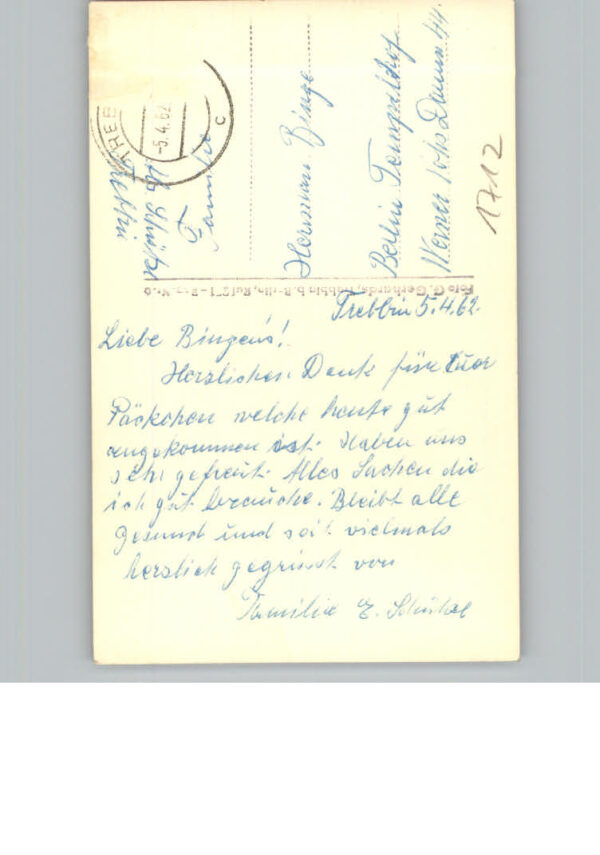 Trebbin 5.4.62.
Liebe Bingens!
Herzlichen Dank für Euer
Päckchen welche heute gut
angekommen ist. Haben uns
sehr gefreut. Alles Sachen die
ich gut brauche. Bleibt alle
Gesund und seit vielmals
herzlich gegrüsst von
Familie E. Schütze
Familie
Hermann Binge
Berlin Tempelhof
Werner Voss Damm 44.
1712
TREB
-5.4.62
c
Foto G. Gerhards, Trebbin b. Berlin, Ruf 271 -